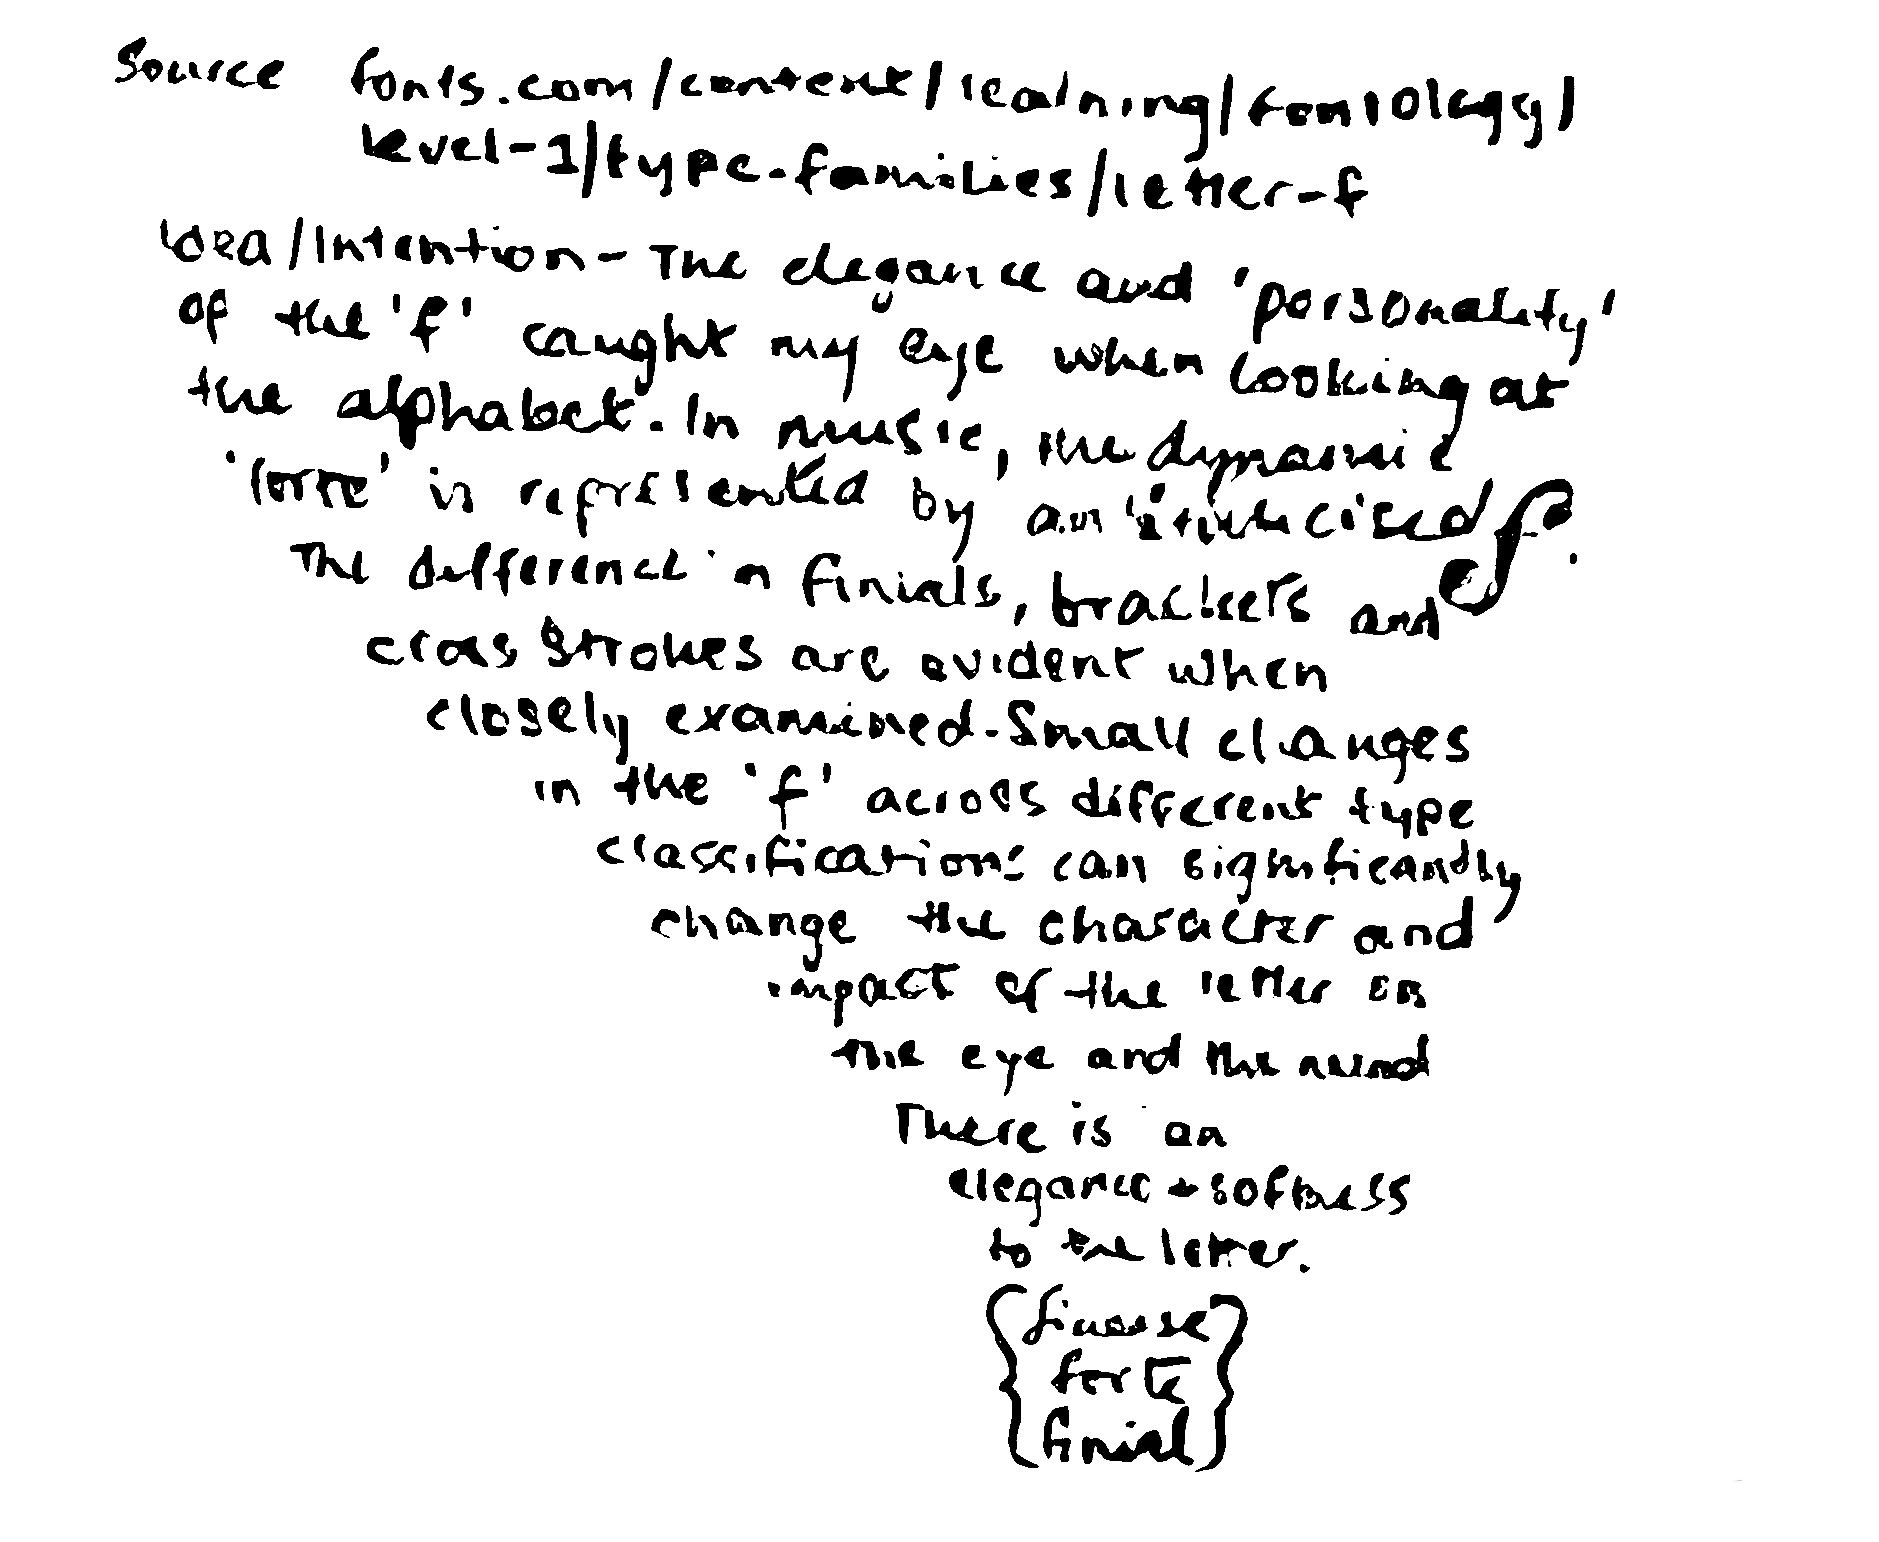 Source fonts.com/content/learning/fontology/
level-1/type-families/letter-f
Idea/Intention - The elegance and 'personality'
of the 'f' caught my eye when looking at
the alphabet. In music, the dynamic
'forte' is represented by an italicised f.
The difference in finials, brackets and
cross strokes are evident when
closely examined. Small changes
in the 'f' across different type
classifications can significantly
change the character and
impact of the letter on
the eye and the mind
There is an
elegance + softness
to the letter.
{finesse}
forte
finial